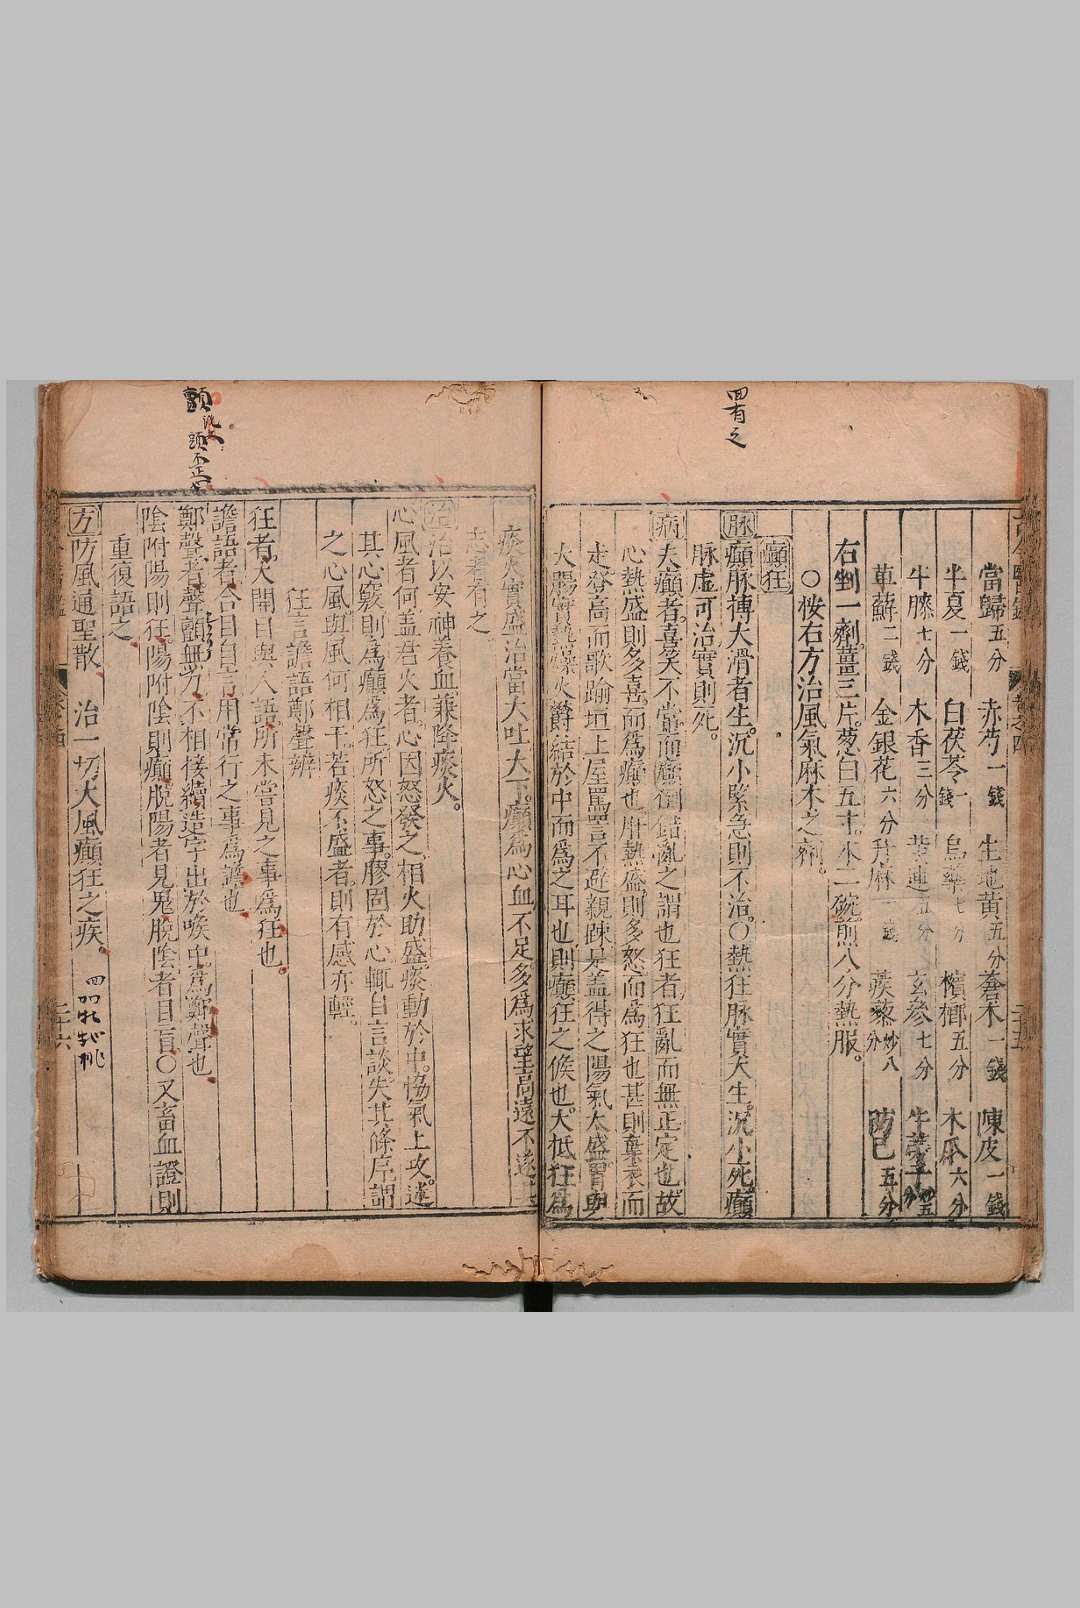 四有之
當歸五分 赤芍一錢 生地黃五分 蒼朮一錢 陳皮一錢
半夏一錢 白茯苓一錢 烏藥七分 檳榔五分 木瓜六分
牛膝七分 木香三分 黃連五分 玄參七分 牛蒡子
萆薢二錢 金銀花六分 升麻一錢 蒺藜炒八分 防己五分
右剉一劑薑三片葱白五寸水二碗煎八分熱服
○按右方治風氣麻木之劑
癲狂
脉 癲脉搏大滑者生沉小緊急則不治○熱狂脉實大生沉小死癲
脉虛可治實則死
病 夫癲者喜笑不常而癲倒錯亂之謂也狂者狂亂而無正定也故
心熱盛則多喜而為癲也肝熱盛則多怒而為狂也甚則棄衣而
走登高而歌踰垣上屋罵詈不避親踈是盖得之陽氣太盛胃與
大腸實熱燥火欝結於中而為之耳也則癲狂之候也大抵狂為
痰火實盛治當大吐大下癲為心血不足多為求望高遠不遂
志者有之
治 治以安神養血兼降痰火
心風者何盖君火者心因怒發之相火助盛痰動於中恊氣上攻遂
其心竅則為癲為狂所怒之事膠固於心輒自言談失其條序謂
之心風與風何相干若痰不盛者則有感亦輕
狂言譫語鄭聲辨
狂者大開目與人語所未嘗見之事為狂也
譫語者合目自言用常行之事為譫也
鄭聲者聲顫無力不相接續造字出於喉中為鄭聲也
陰附陽則狂陽附陰則癲脫陽者見鬼脫陰者目盲○又畜血證則
重復語之
方 防風通聖散 治一切大風癲狂之疾
卷之四
三十六